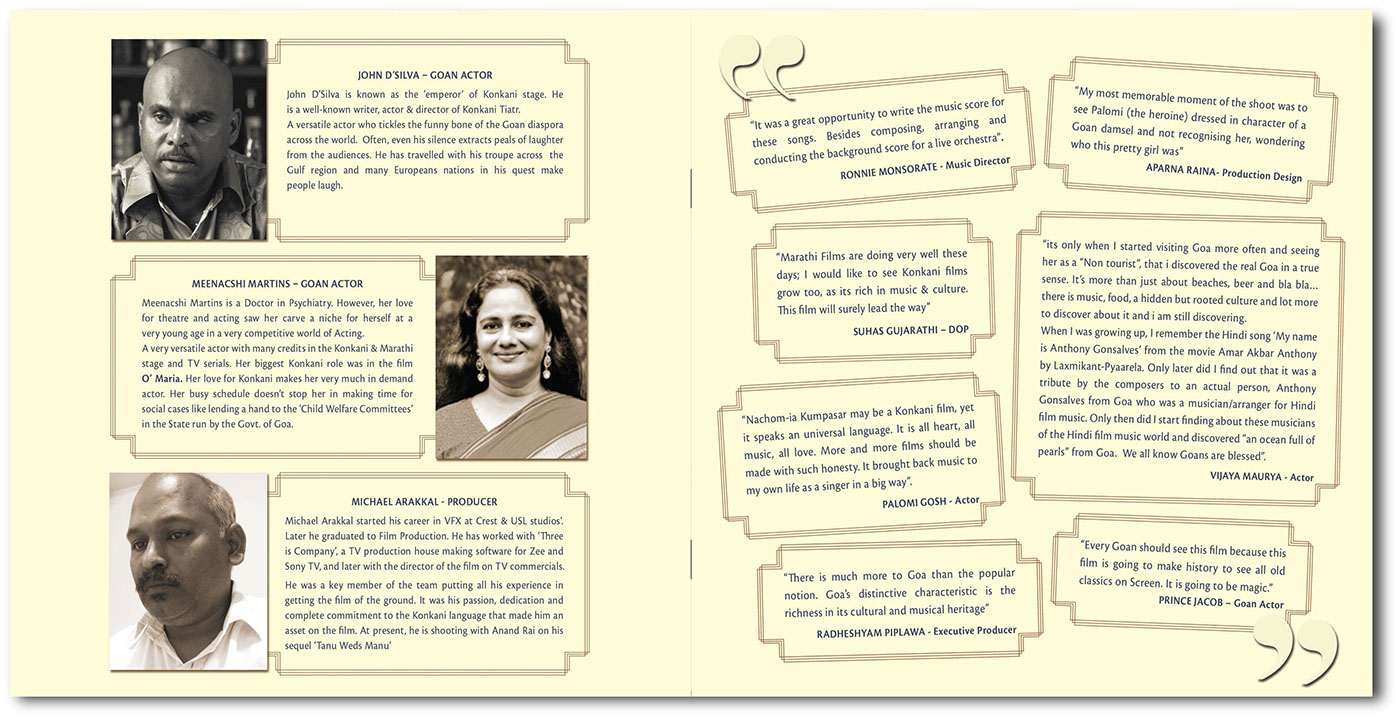 JOHN D'SILVA – GOAN ACTOR
John D'Silva is known as the 'emperor' of Konkani stage. He
is a well-known writer, actor & director of Konkani Tiatr.
A versatile actor who tickles the funny bone of the Goan diaspora
across the world. Often, even his silence extracts peals of laughter
from the audiences. He has travelled with his troupe across the
Gulf region and many Europeans nations in his quest make
people laugh.
MEENACSHI MARTINS – GOAN ACTOR
Meenacshi Martins is a Doctor in Psychiatry. However, her love
for theatre and acting saw her carve a niche for herself at a
very young age in a very competitive world of Acting.
A very versatile actor with many credits in the Konkani & Marathi
stage and TV serials. Her biggest Konkani role was in the film
O' Maria. Her love for Konkani makes her very much in demand
actor. Her busy schedule doesn't stop her in making time for
social cases like lending a hand to the 'Child Welfare Committees'
in the State run by the Govt. of Goa.
MICHAEL ARAKKAL - PRODUCER
Michael Arakkal started his career in VFX at Crest & USL studios'.
Later he graduated to Film Production. He has worked with 'Three
is Company', a TV production house making software for Zee and
Sony TV, and later with the director of the film on TV commercials.
He was a key member of the team putting all his experience in
getting the film of the ground. It was his passion, dedication and
complete commitment to the Konkani language that made him an
asset on the film. At present, he is shooting with Anand Rai on his
sequel 'Tanu Weds Manu'
“
"It was a great opportunity to write the music score for
these songs. Besides composing, arranging and
conducting the background score for a live orchestra".
RONNIE MONSORATE - Music Director
"My most memorable moment of the shoot was to
see Palomi (the heroine) dressed in character of a
Goan damsel and not recognising her, wondering
who this pretty girl was"
APARNA RAINA- Production Design
"Marathi Films are doing very well these
days; I would like to see Konkani films
grow too, as its rich in music & culture.
This film will surely lead the way"
SUHAS GUJARATHI – DOP
"its only when I started visiting Goa more often and seeing
her as a "Non tourist", that i discovered the real Goa in a true
sense. It's more than just about beaches, beer and bla bla...
there is music, food, a hidden but rooted culture and lot more
to discover about it and i am still discovering.
When I was growing up, I remember the Hindi song 'My name
is Anthony Gonsalves' from the movie Amar Akbar Anthony
by Laxmikant-Pyaarela. Only later did I find out that it was a
tribute by the composers to an actual person, Anthony
Gonsalves from Goa who was a musician/arranger for Hindi
film music. Only then did I start finding about these musicians
of the Hindi film music world and discovered "an ocean full of
pearls" from Goa. We all know Goans are blessed".
VIJAYA MAURYA - Actor
"Nachom-ia Kumpasar may be a Konkani film, yet
it speaks an universal language. It is all heart, all
music, all love. More and more films should be
made with such honesty. It brought back music to
my own life as a singer in a big way".
PALOMI GOSH - Actor
"There is much more to Goa than the popular
notion. Goa's distinctive characteristic is the
richness in its cultural and musical heritage"
RADHESHYAM PIPLAWA - Executive Producer
"Every Goan should see this film because this
film is going to make history to see all old
classics on Screen. It is going to be magic."
PRINCE JACOB – Goan Actor
”